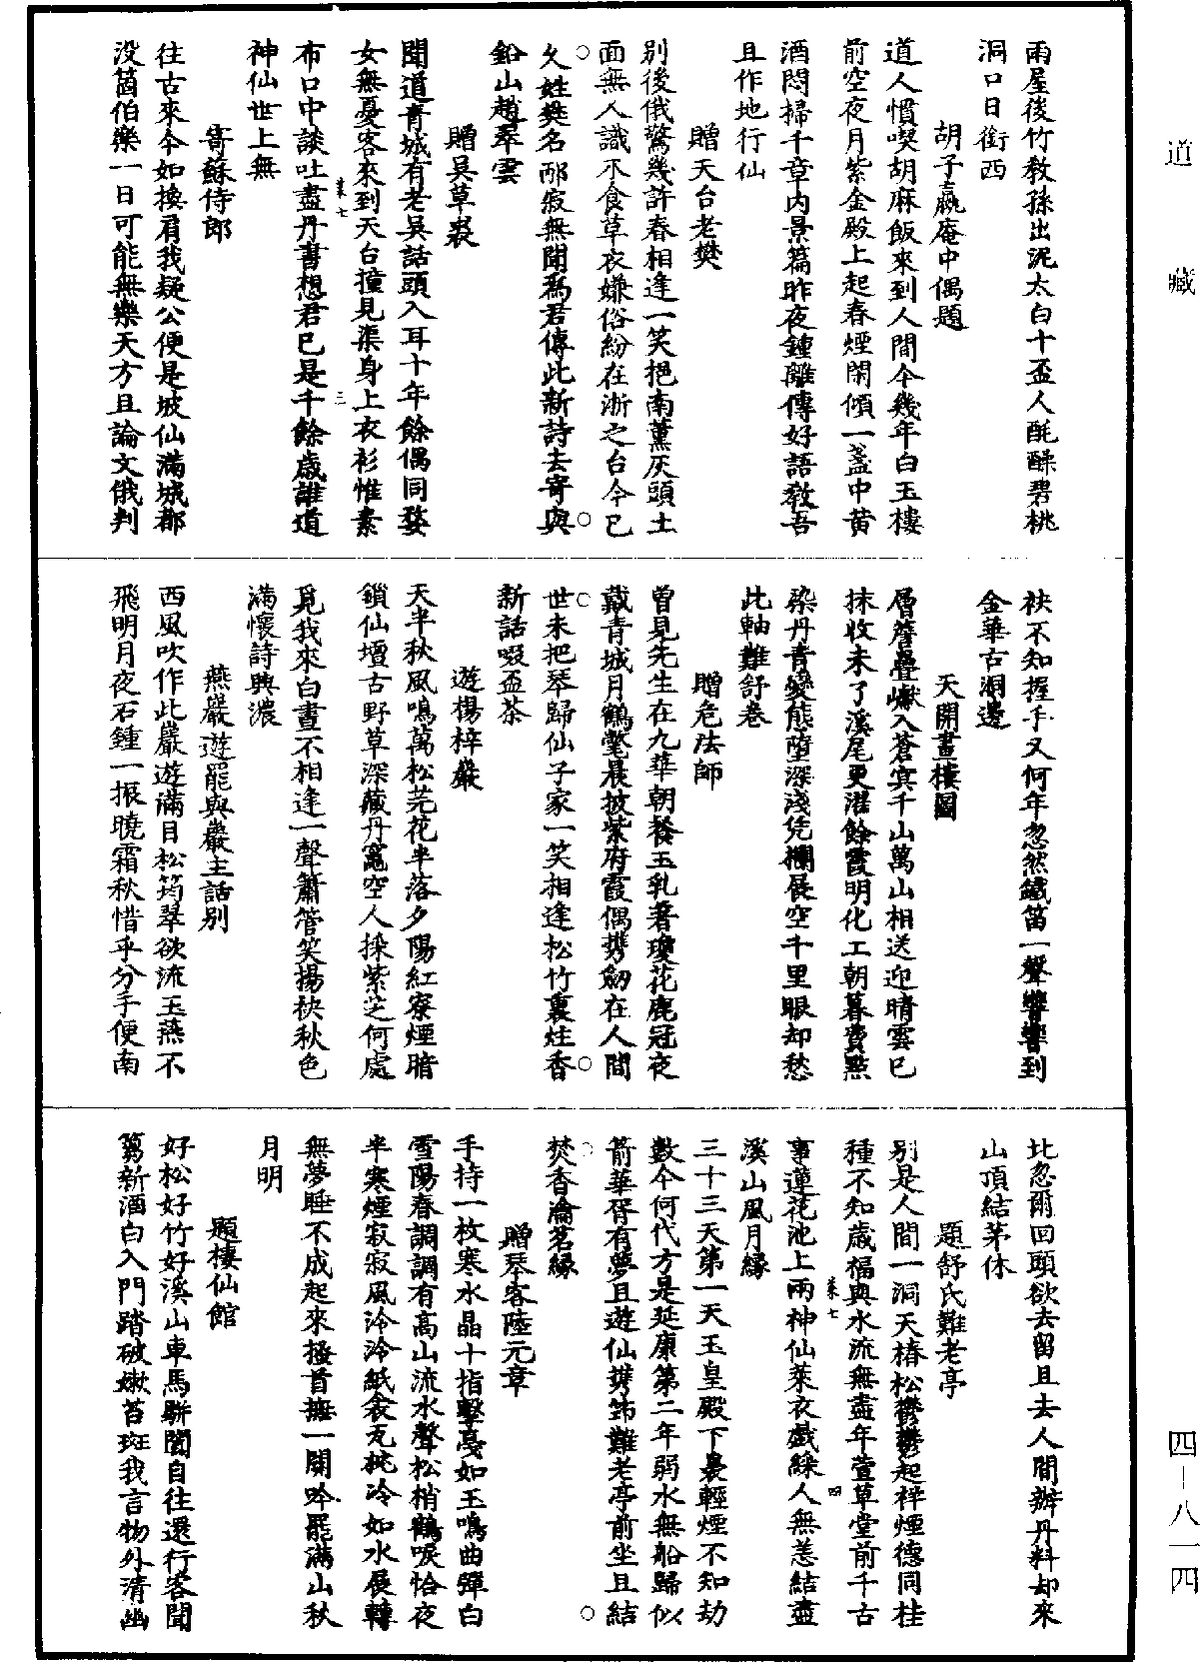 道藏
雨屋後竹教孫出泥太白十盃人酕醄碧桃
洞口日銜西
胡子嬴庵中偶題
道人慣喫胡麻飯來到人間今幾年白玉樓
前空夜月紫金殿上起春煙閑傾一盞中黄
酒悶掃千章内景篇昨夜鍾離傳好語教吾
且作地行仙
贈天台老樊
别後俄驚幾許春相逢一笑挹南薰灰頭土
面無人識不食草衣嫌俗紛在浙之台今已
久姓樊名邴寂無聞為君傳此新詩去寄與
鉛山趙翠雲
贈吴草裘
聞道青城有老吴話頭入耳十年餘偶同婺
女無憂客來到天台撞見渠身上衣衫惟素
菜七
三
布口中談吐盡丹書想君已是千餘歲誰道
神仙世上無
寄蘇侍郎
往古來今如換肩我疑公便是坡仙滿城都
没箇伯樂一日可能無樂天方且論文俄判
袂不知握手又何年忽然鐵笛一聲響響到
金華古洞邊
天開畫樓圖
層簷疊巘入蒼㝠千山萬山相送迎晴雲已
抹收未了溪尾更濯餘霞明化工朝暮費點
染丹青變態墮深淺凭欄展空千里眼却愁
此軸難舒卷
贈危法師
曾見先生在九華朝餐玉乳著瓊花鹿冠夜
戴青城月鶴氅晨披紫府霞偶携劒在人間
世未把琴歸仙子家一笑相逢松竹裏炷香
新話啜盃茶
遊楊梓巖
天半秋風鳴萬松芫花半落夕陽紅寮煙暗
鎖仙壇古野草深藏丹竈空人採紫芝何處
覓我來白晝不相逢一聲簫管笑揚袂秋色
滿懷詩興濃
燕巖遊罷與巖主話别
西風吹作此巖遊滿目松筠翠欲流玉燕不
飛明月夜石鍾一振曉霜秋惜乎分手便南
北忽爾回頭欲去留且去人間辦丹料却來
山頂結茅休
題舒氏難老亭
别是人間一洞天椿松鬱鬱起梓煙德同桂
種不知歲福與水流無盡年萱草堂前千古
菜七
四
事蓮花池上兩神仙萊衣戲綵人無恙結盡
溪山風月緣
三十三天第一天玉皇殿下裊輕煙不知劫
數今何代方是延康第二年弱水無船歸似
箭華胥有夢且遊仙携筇難老亭前坐且結
焚香瀹茗緣
贈琴客陸元章
手持一枚寒水晶十指擊戞如玉鳴曲彈白
雪陽春調調有高山流水聲松梢鶴唳恰夜
半寒煙寂寂風泠泠紙衾瓦枕冷如水展轉
無夢睡不成起來搔首撫一闋吟罷滿山秋
月明
題棲仙館
好松好竹好溪山車馬駢闐自往還行客聞
篘新酒白入門踏破嫩苔斑我言物外清幽
四一八一四